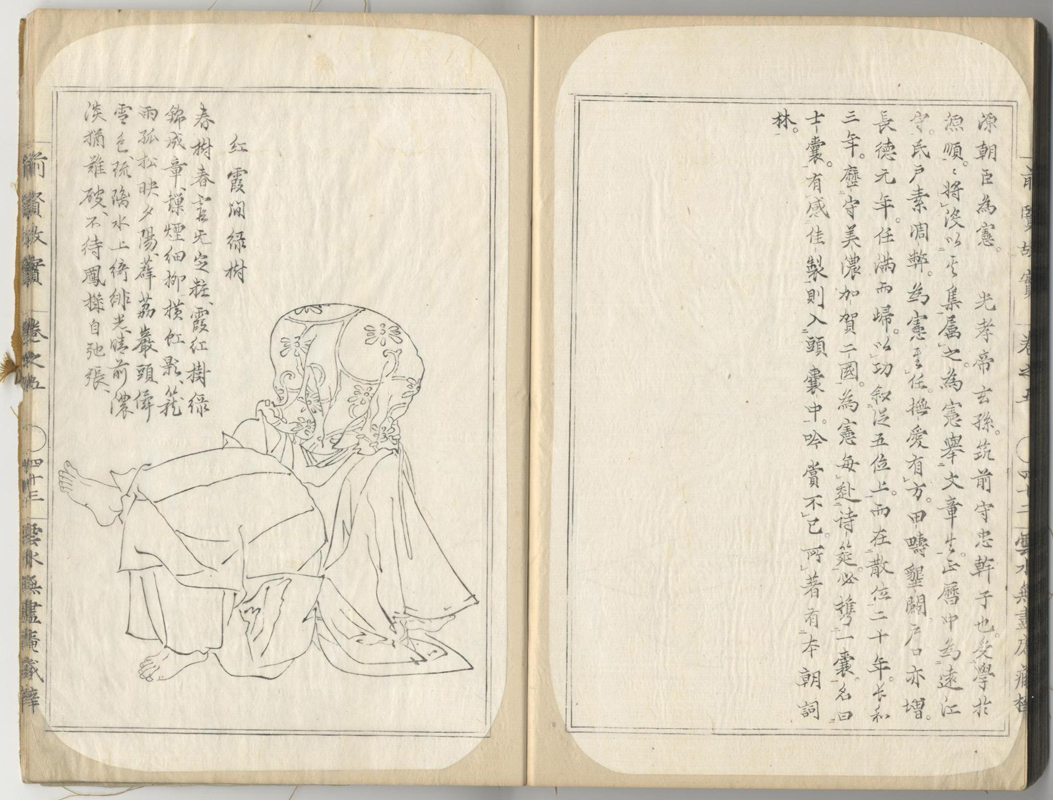 源朝臣為憲。 光孝帝玄孫。筑前守忠幹子也。受學於
源順。順將沒以其集属之為憲。擧文章生。正暦中為遠江
守。民戸素凋弊。為憲至任撫愛有方。田疇墾闢戸口亦増。
長德元年。任滿而歸。以功叙從五位上。而在散位二十年。長和
三年。歴守美濃加賀二國。為憲每赴詩筵。必携一囊。名曰
士囊。有感佳製則入頭囊中。吟賞不已。所著有本朝詞
林。
紅霞間緑樹
春樹春雲无定粧、霞紅樹緑
錦成章、烟細柳横虹影、
雨孤松映夕陽、薜荔巖頭
雪色、疏 水上綺 光、晴前濃
淡猶難破、不待鳳 自弛張、
前賢故實 卷之五 四十二 雲水無盡庵藏梓
前賢故實 卷之五 四十三 雲水無盡庵藏梓